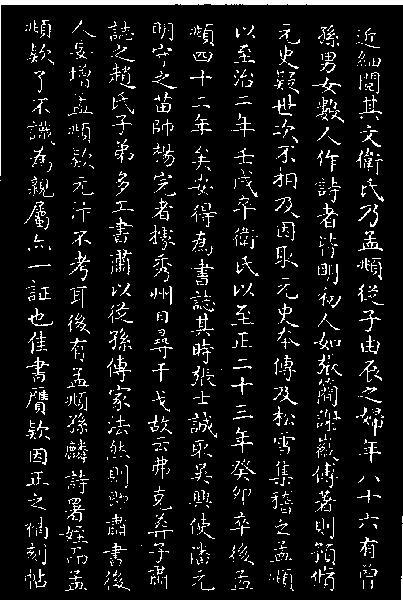 近細閱其文衛氏乃孟頫從子由辰之婦年八十六有曾
孫男女數人作詩者皆明初人如張簡謝徽傅著則預脩
元史疑世次不相及因取元史本傳及松雪集稽之孟頫
以至治二年壬戌卒衛氏以至正二十三年癸卯卒後孟
頫四十二年矣安得為書誌其時張士誠取吳興使潘元
明守之苗帥楊完者據秀州日尋干戈故云弗克葬子肅
誌之趙氏子弟多工書肅以從孫傳家法然則肅書後
人妄增孟頫款元汴不考耳後有孟頫孫麟詩署姪而孟
頫款了不識為親屬亦一証也佳書贗款因正之刻帖